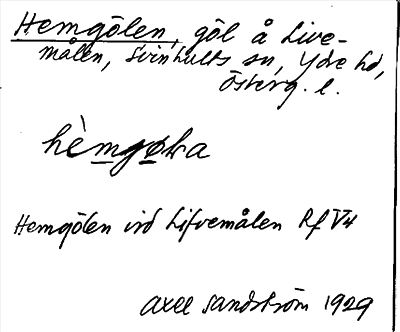 Hemgölen, göl å Live-
målen, Svinhults sn, Ydre hd,
Österg. l.
hèmgøka
Hemgölen vid Lifvemålen Rf V4
Axel Sandström 1929